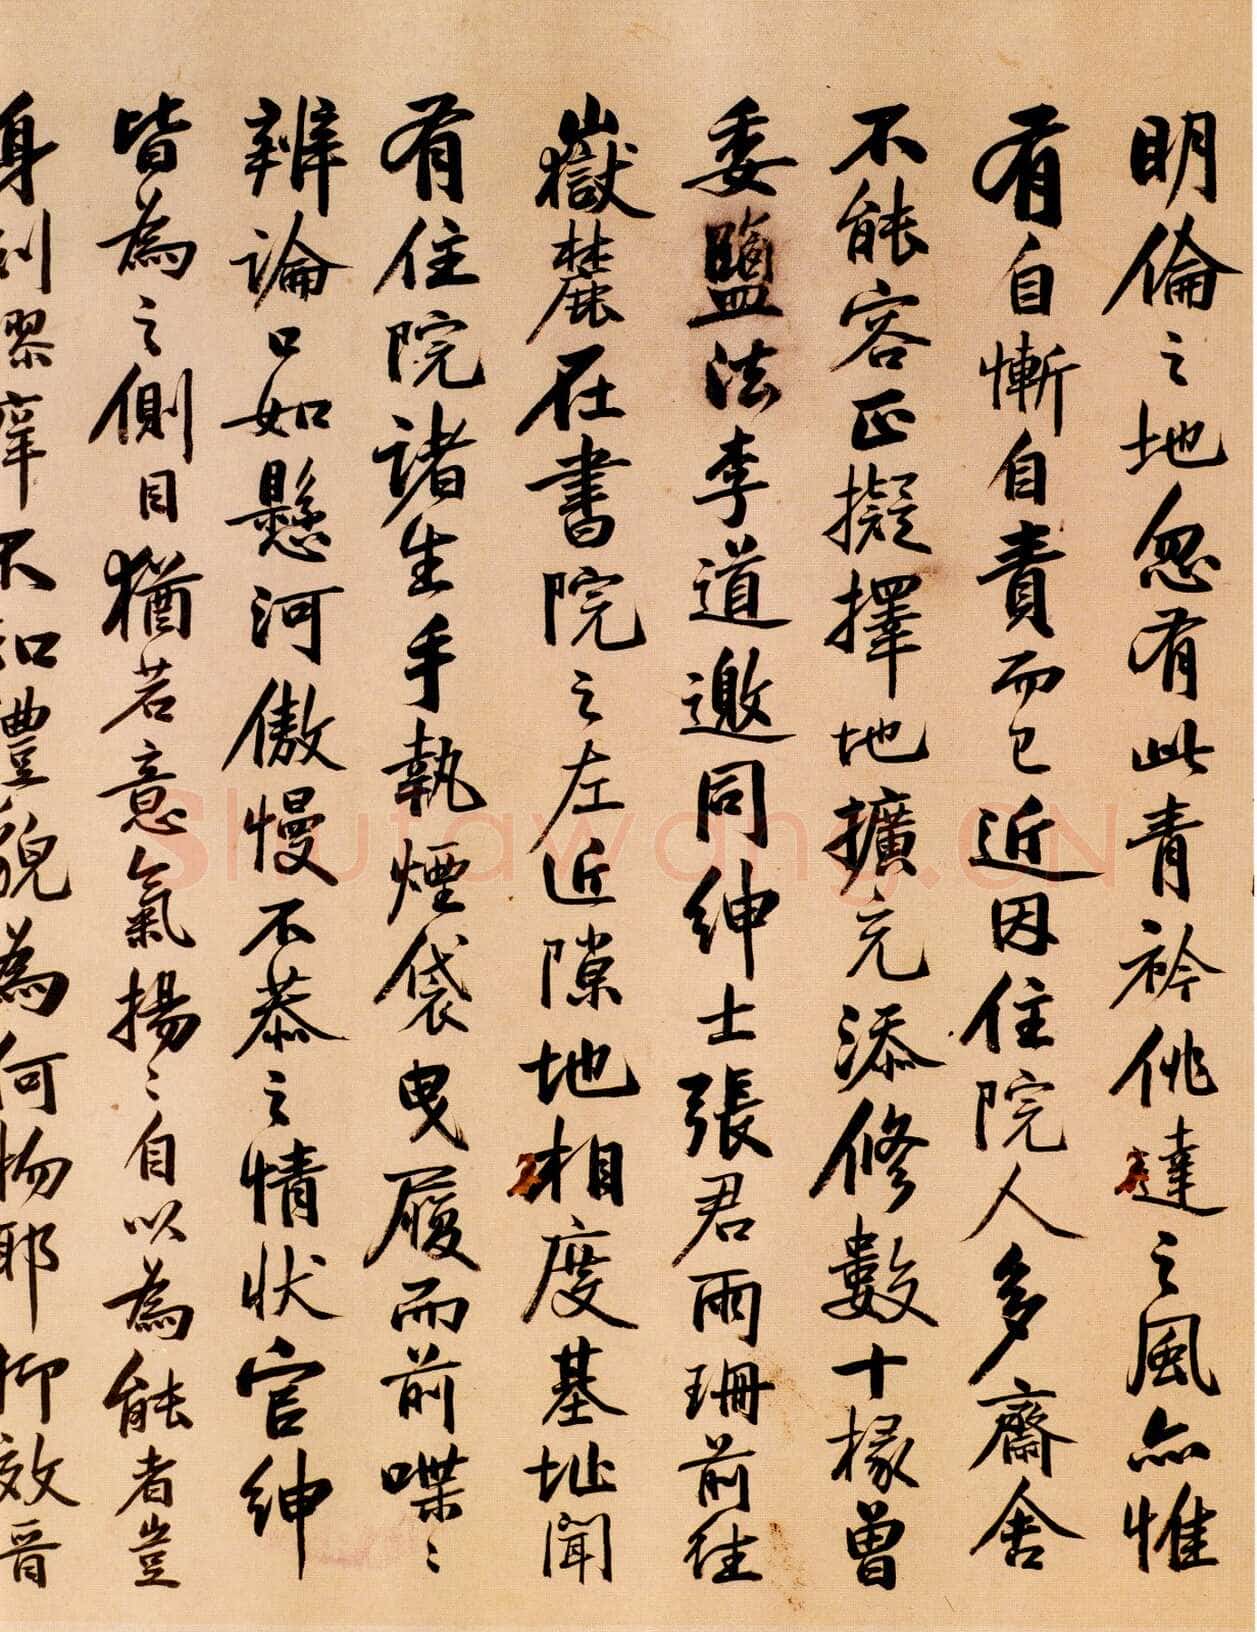 明倫之地忽有此青衿佻達之風亦惟
有自慚自責而已近因住院人多齋舍
不能容正擬擇地擴充添修數十椽曾
委鹽法李道邀同紳士張君雨珊前往
嶽麓在書院之左近隙地相度基址聞
有住院諸生手執煙袋曳履而前喋〻
辨論口如懸河傲慢不恭之情狀官紳
皆為之側目猶若意氣揚〻自以為能者豈
身列膠庠不知禮貌為何物耶抑效晉
shufawang.CN